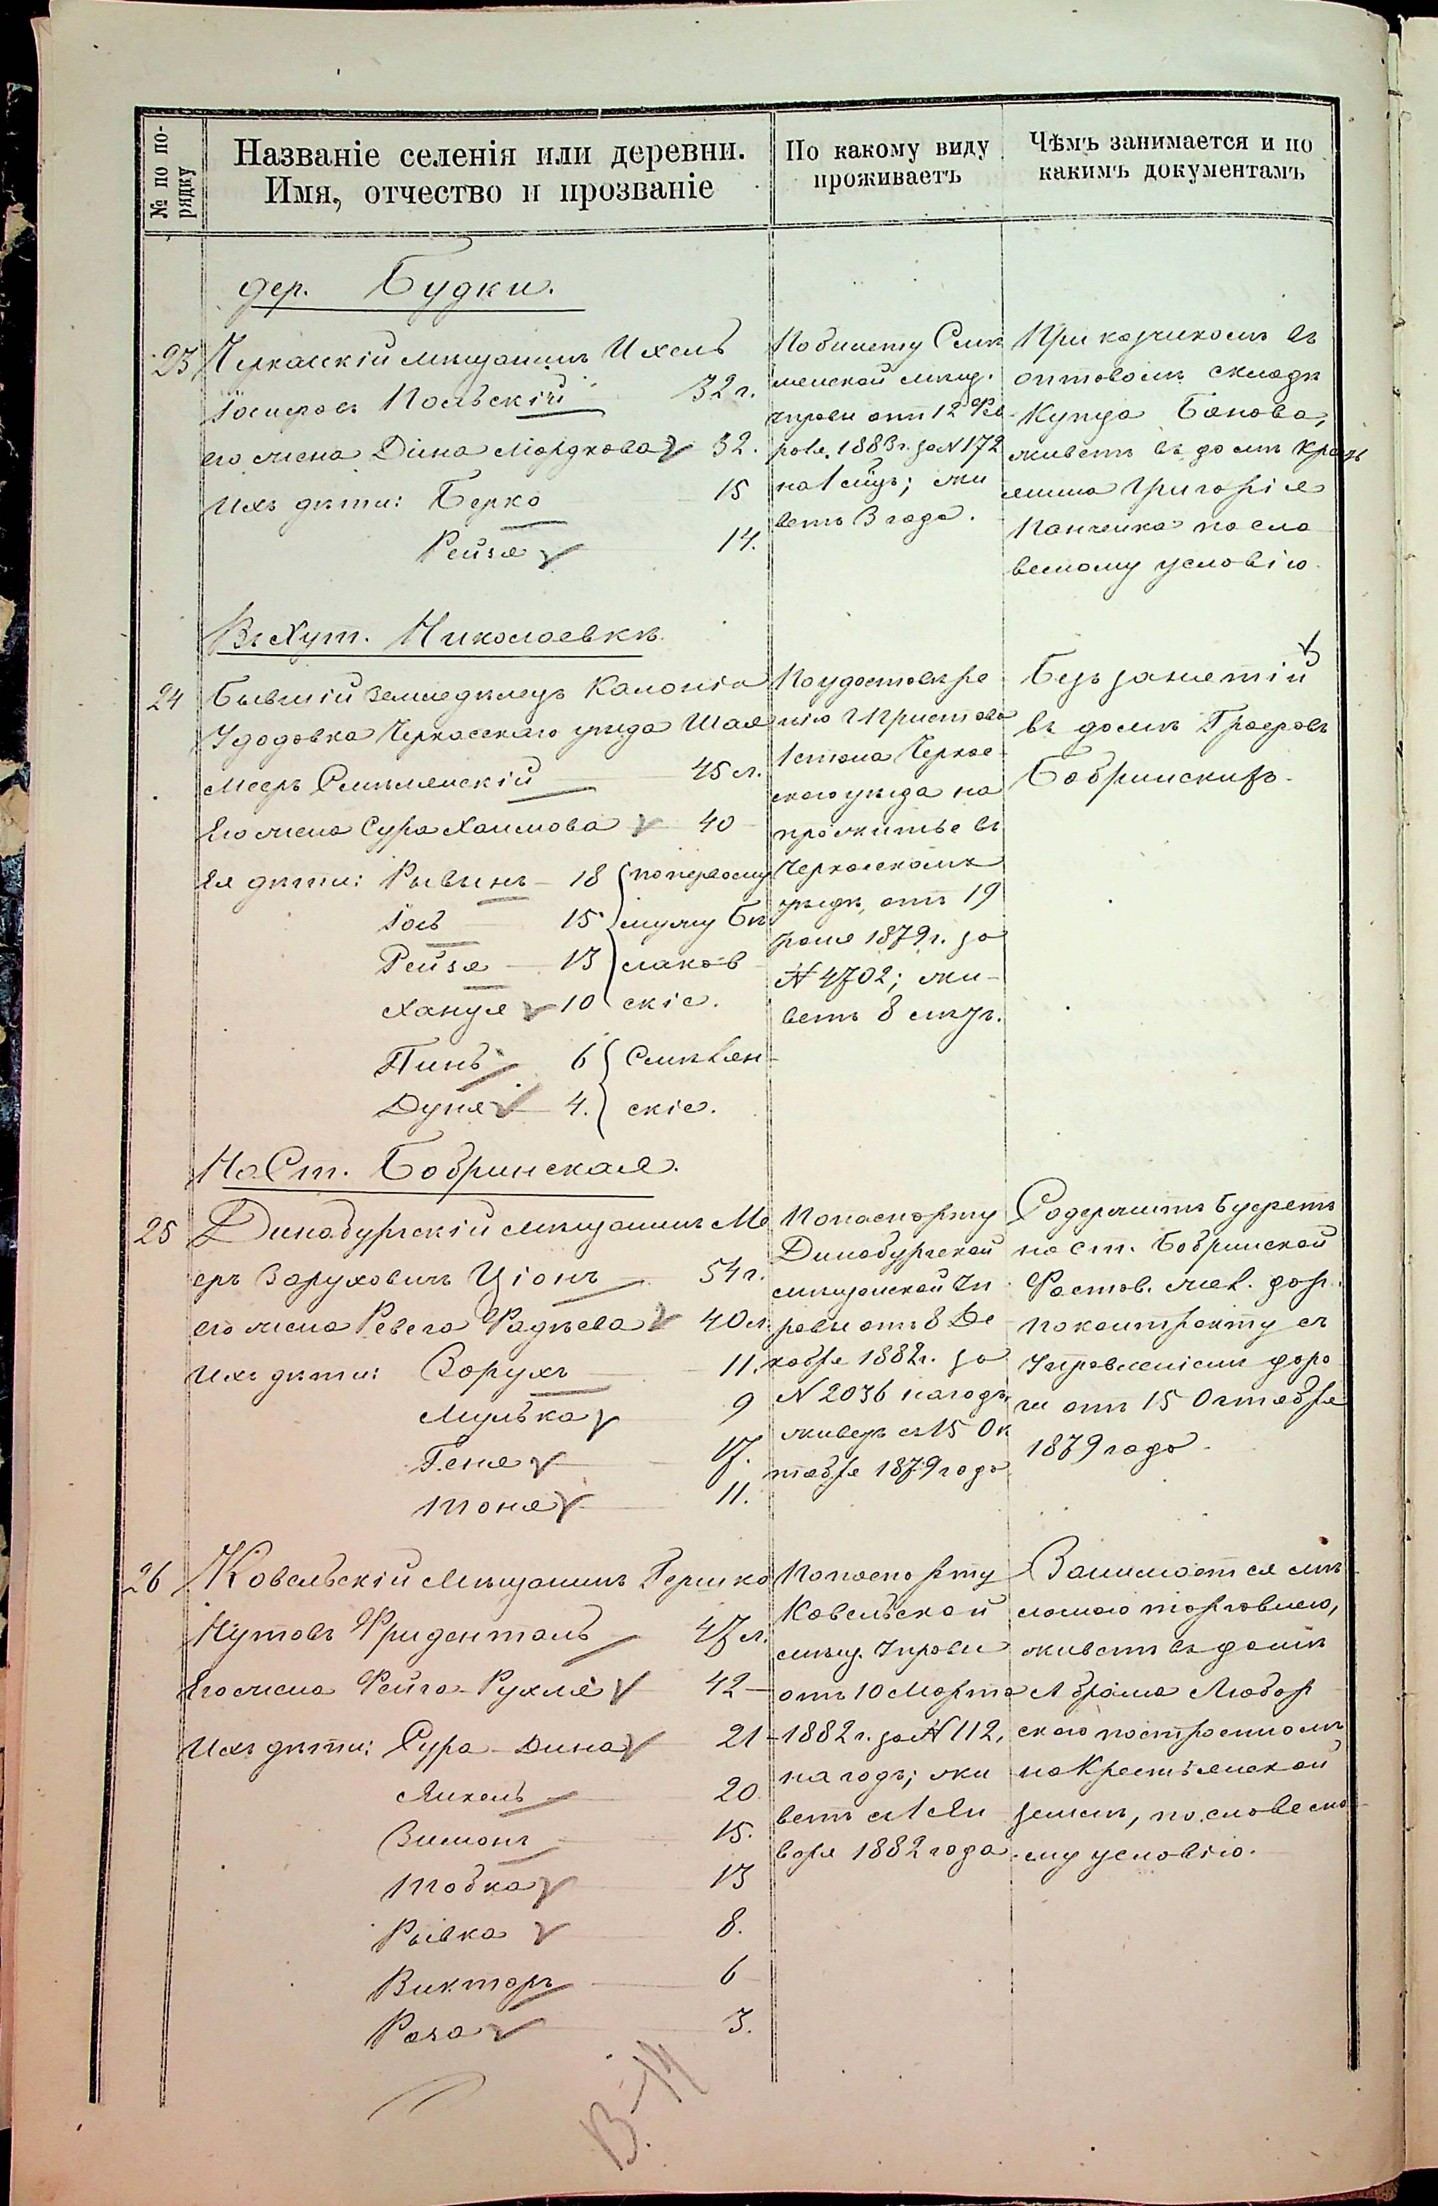 № по по-
рядку
Названіе селенія или деревни.
Имя, отчество и прозваніе
По какому виду
проживаетъ
Чѣмъ занимается и по
какимъ документамъ
дер. Будки.
23 Черкасскій мѣщанинъ Ихель
Польскій 32 г.
его жена Дина Мордкова 32.
Ихъ дѣти: Берко 15
Рейзя 14.
По билету Смѣ
лянской мѣщ.
управы отъ 12 Фев
раля 1883 г. за N 172
на 1 мѣс.; жи
ветъ 3 года.
Прикащикомъ въ
оптовомъ складѣ
Купца
живетъ въ домѣ крест
янина Григорія
Панченка по сло
весному условію.
Въ Хут. Николаевкѣ
24 Бывшій земледѣлецъ Колоніи
Удодовка Черкасскаго уѣзда Шая
Мееръ Смѣлянскій 45 л.
Его жена Сура Хаимова 40
Ея дѣти: Рывинъ 18
Іось 15
Рейзя 13
Хануля 10
по первому
мужу Бѣ
лаков
скіе.
Пинь 6
Дуня 4.
Смѣлян-
скіе.
По удостовѣре
нію Пристава
1 стана Черкас
скаго уѣзда на
прожитье въ
Черкасскомъ
уѣздѣ, отъ 19
1879 г. за
N 4702; жи-
ветъ 8 мѣс.
Безъ занятій
въ домѣ Графовъ
Бобринскихъ.
На Ст. Бобринская.
25 Динабургскій мѣщанинъ Ме
еръ Боруховичъ Ціонъ 54 г.
его жена Ревека 40 л.
Ихъ дѣти: Борухъ 11.
Мулька 9
Геня 17.
Тоня 11.
По паспорту
Динабургской
мѣщанской Уп
равы отъ 8 Де
кабря 1882 г. за
N 2036 на годъ,
живетъ съ 15 Ок
тября 1879 года
Содержитъ буфетъ
на ст. Бобринской
Фастов. жел. дор.
по контракту съ
Управленіемъ доро
ги отъ 15 Октября
1879 года.
26 Ковельскій Мѣщанинъ Гершко
Нутовъ Фриденталь 47 л.
Его жена Фейга-Рухля 42
Ихъ дѣти: Сура-Дина 21
Янкель 20.
Зимонъ 15.
Тобка 13
Рывка 8.
Викторъ 6
Роза 3.
По паспорту
Ковельской
мѣщ. Управы
отъ 10 Марта
1882 г. за N 112,
на годъ; жи
ветъ съ 1 Ян
варя 1882 года.
Занимается мѣ
лочною торговлею,
живетъ въ домѣ
Абрама Любар
скаго построенномъ
на Крестьянской
землѣ, по словесно
му условію.